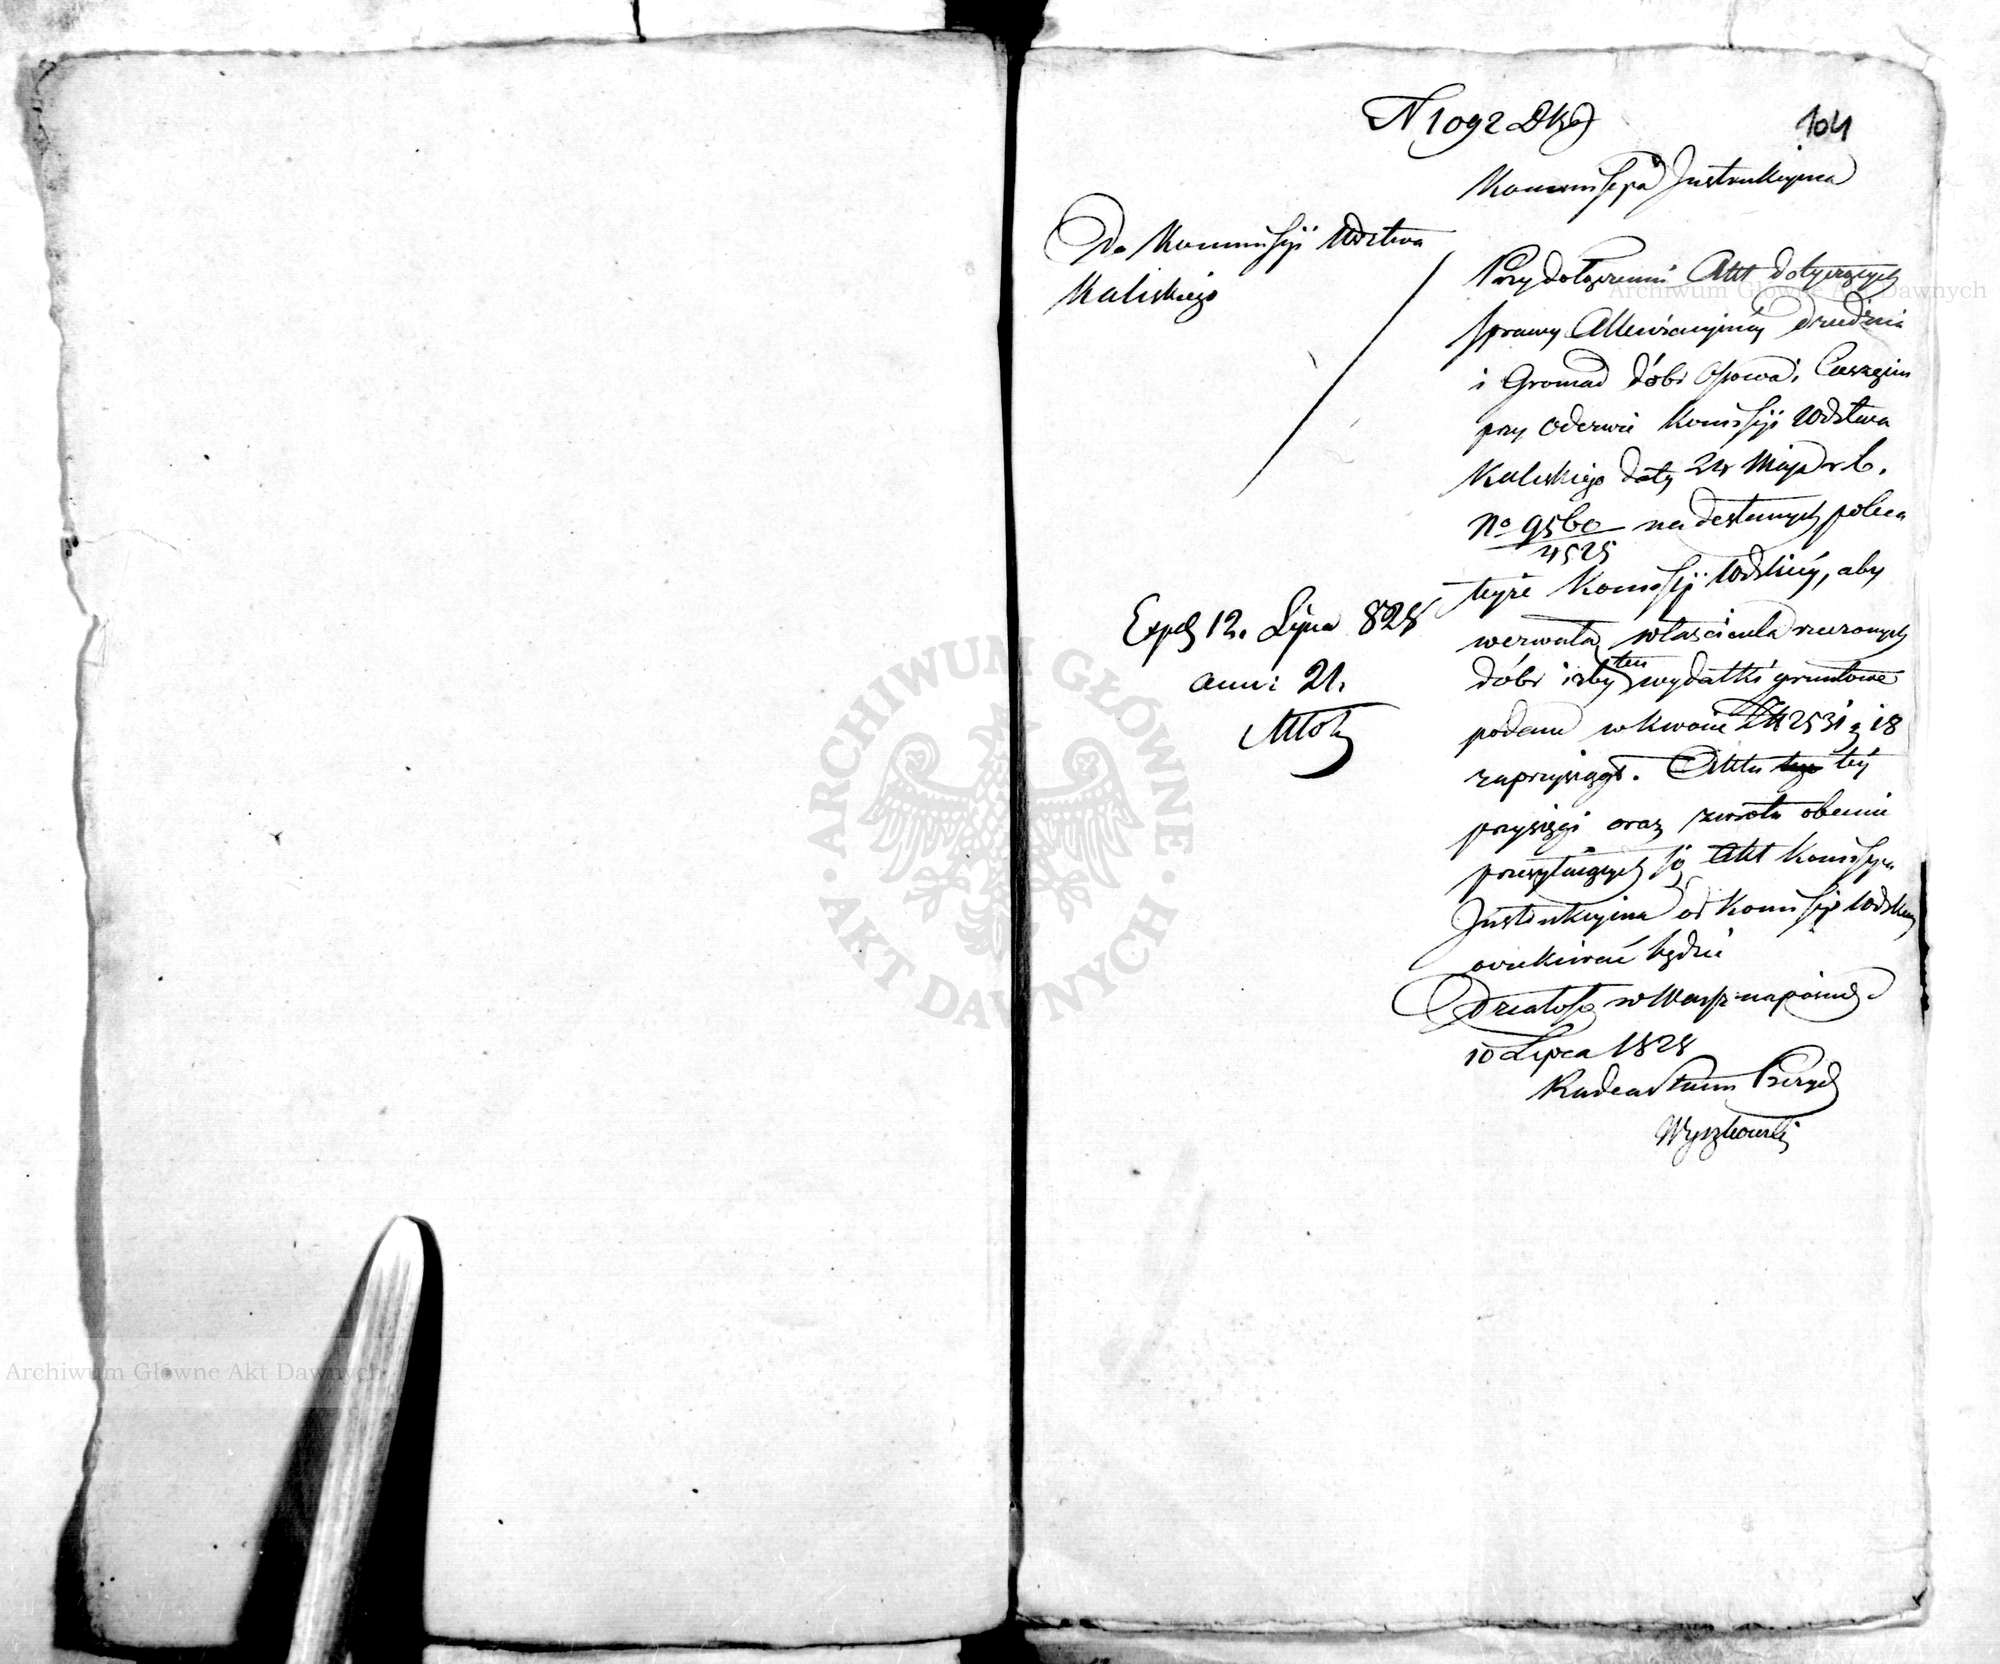 N 1092
104
Kommissya Instrukcyina
Do Kommissyi Wdztwa
Kaliskiego
Przy dołączeniu Akt dotyczących
sprawy Allewiacyiney
i Gromad dóbr Osowa i
przy odezwie Komissyi Wdztwa
Kaliskiego daty 24 Maja r b.
No 9560/4525 nadesłanych poleca
teyże Komissyi Wdzkiey, aby
wezwała właściciela rzeczonych
dóbr iżby ten wydatki gruntowe
podane w kwocie 2531 g 18
zaprzysiągł. Aktu tey
przysięgi oraz zwrotu obecnie
przesyłaiących się Akt Komissya
Instrukcyina od Komissyi Wdzkiey
oczekiwać będzie
Działo się w Warsz na posiedz.
10 Lipca 1828
Radca Stanu Prezyd
Wyszkowski
Exped 12. Lipca 828
ann: 21.
ARCHIWUM GŁÓWNE AKT DAWNYCH
Archiwum Główne Akt Dawnych
Archiwum Główne Akt Dawnych